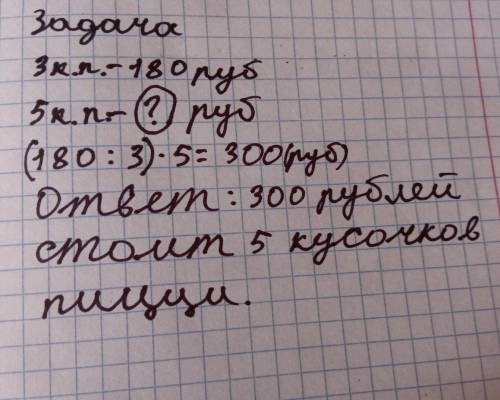 Задача
3к.п.-180 руб
5к.п.- ? руб
(180:3)·5=300(руб)
Ответ: 300 рублей
стоит 5 кусочков
пицци.